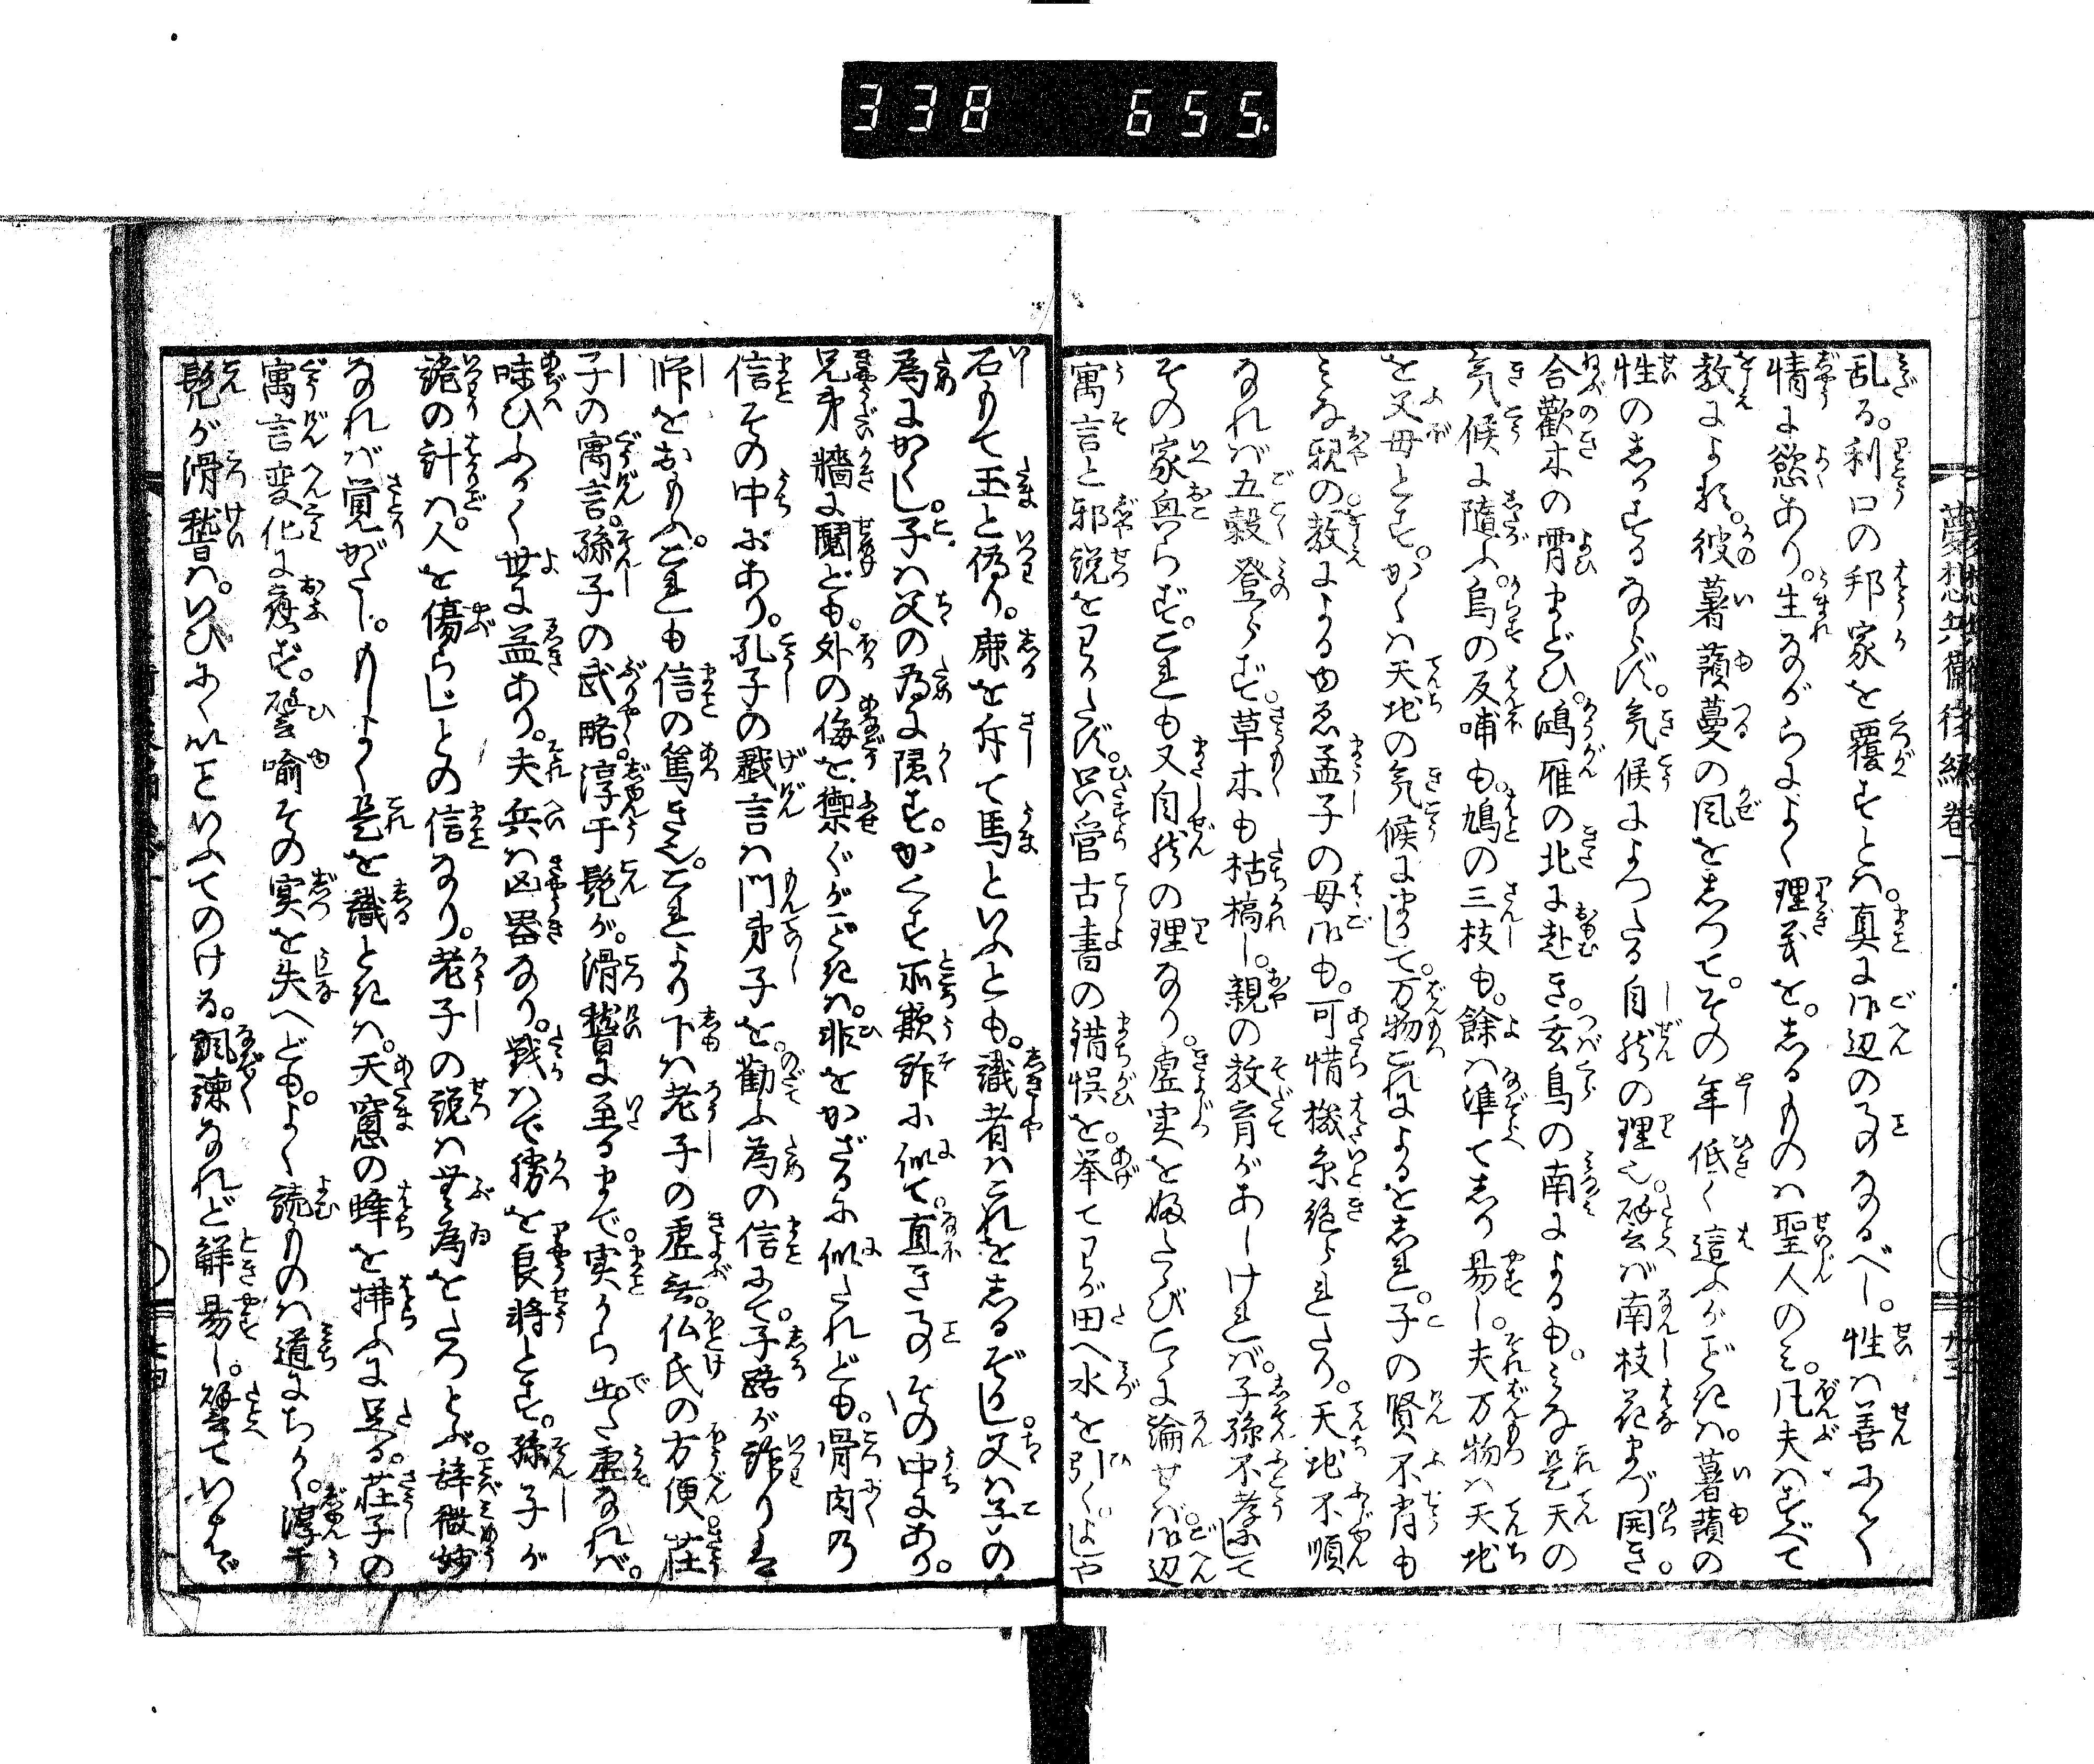 338 655
夢想兵衛後編巻一
乱る。利口の邦家を覆すとは。真に御辺の事なるべし。性は善にして
情に慾あり。生ながらによく理義を。しるものは聖人のみ。凡夫はすべて
教による。彼薯蕷蔓の風をしつて。その年低く這ふがごときは。薯蕷の
性のしかするならず。気候によつたる自然の理也。譬ば南枝花まづ開き。
合歓木の宵まどひ。鴻雁の北に赴き。玄鳥の南によるも。みな是天の
気候に随ふ。烏の反哺も。鳩の三枝も。餘は準てしり易し。夫万物は天地
を父母とす。かくは天地の気候にまかして。万物これによるをしれ。子の賢不肖も
みな親の教によるゆゑ孟子の母御も。可惜機糸絶られたり。天地不順
なれば五穀登らず。草木も枯槁し。親の教育があしければ。子孫不孝にして
その家興らず。これも又自然の理なり。虚実を媛たびこゝに論せば。御辺
寓言と邪説をわかたず。只管古書の錯悞を。挙てわが田へ水を引く。よしや
石もて玉と偽り。鹿を斥て馬といふとも。識者はこれをしるぞかし。父は子の
為にかくし。子は父の為に隠す。かくす所欺詐に似て。直き事その中にあり。
兄弟牆に鬩ども。外の侮を禦ぐがごときは。非をかざるに似たれども。骨肉の
信その中にあり。孔子の戯言は門弟子を。勧ふ為の信にて。子路が詐りは
師をおもふ。これも信の篤きなり。これより下は老子の虚無。仏氏の方便。荘
子の寓言。孫子の武略。淳于髡が。滑稽に至るまで。実から出た虚なれば。
味ひふかく世に益あり。夫兵は凶器なり。戦はで勝を良将とす。孫子が
詭の計は。人を傷らじとの信なり。老子の説は無為をたつとぶ。辞微妙
なれば覚がたし。もしよく是を識ときは。天窓の蜂を拂ふに足る。荘子の
寓言変化に應ず。譬喩その実を失へども。よく読ものは道にちかく。淳于
髡が滑稽は。いひにくいことをいふてのける。諷諫なれど解易し。譬ていはゞ